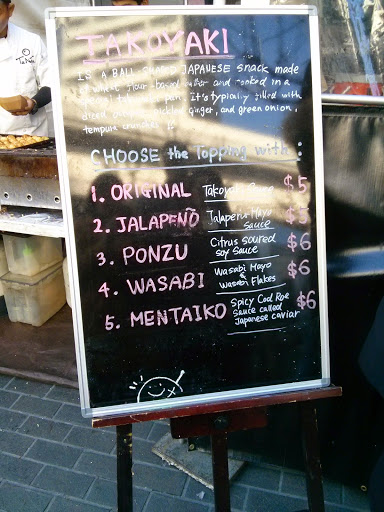 TAKOYAKI
IS A BALL SHAPED JAPANESE snack made
of wheat flour-based batter and cooked in a
pan. It's typically filled with
diced ginger, and green onion,
tempura crunches
CHOOSE the Topping with :
1. ORIGINAL Takoyaki $5
2. JALAPEÑO Jalapeño Mayo Sauce $5
3. PONZU Citrus soured soy Sauce $6
4. WASABI Wasabi Mayo & Wasabi Flakes $6
5. MENTAIKO Spicy Cod Roe Sauce called Japanese caviar $6